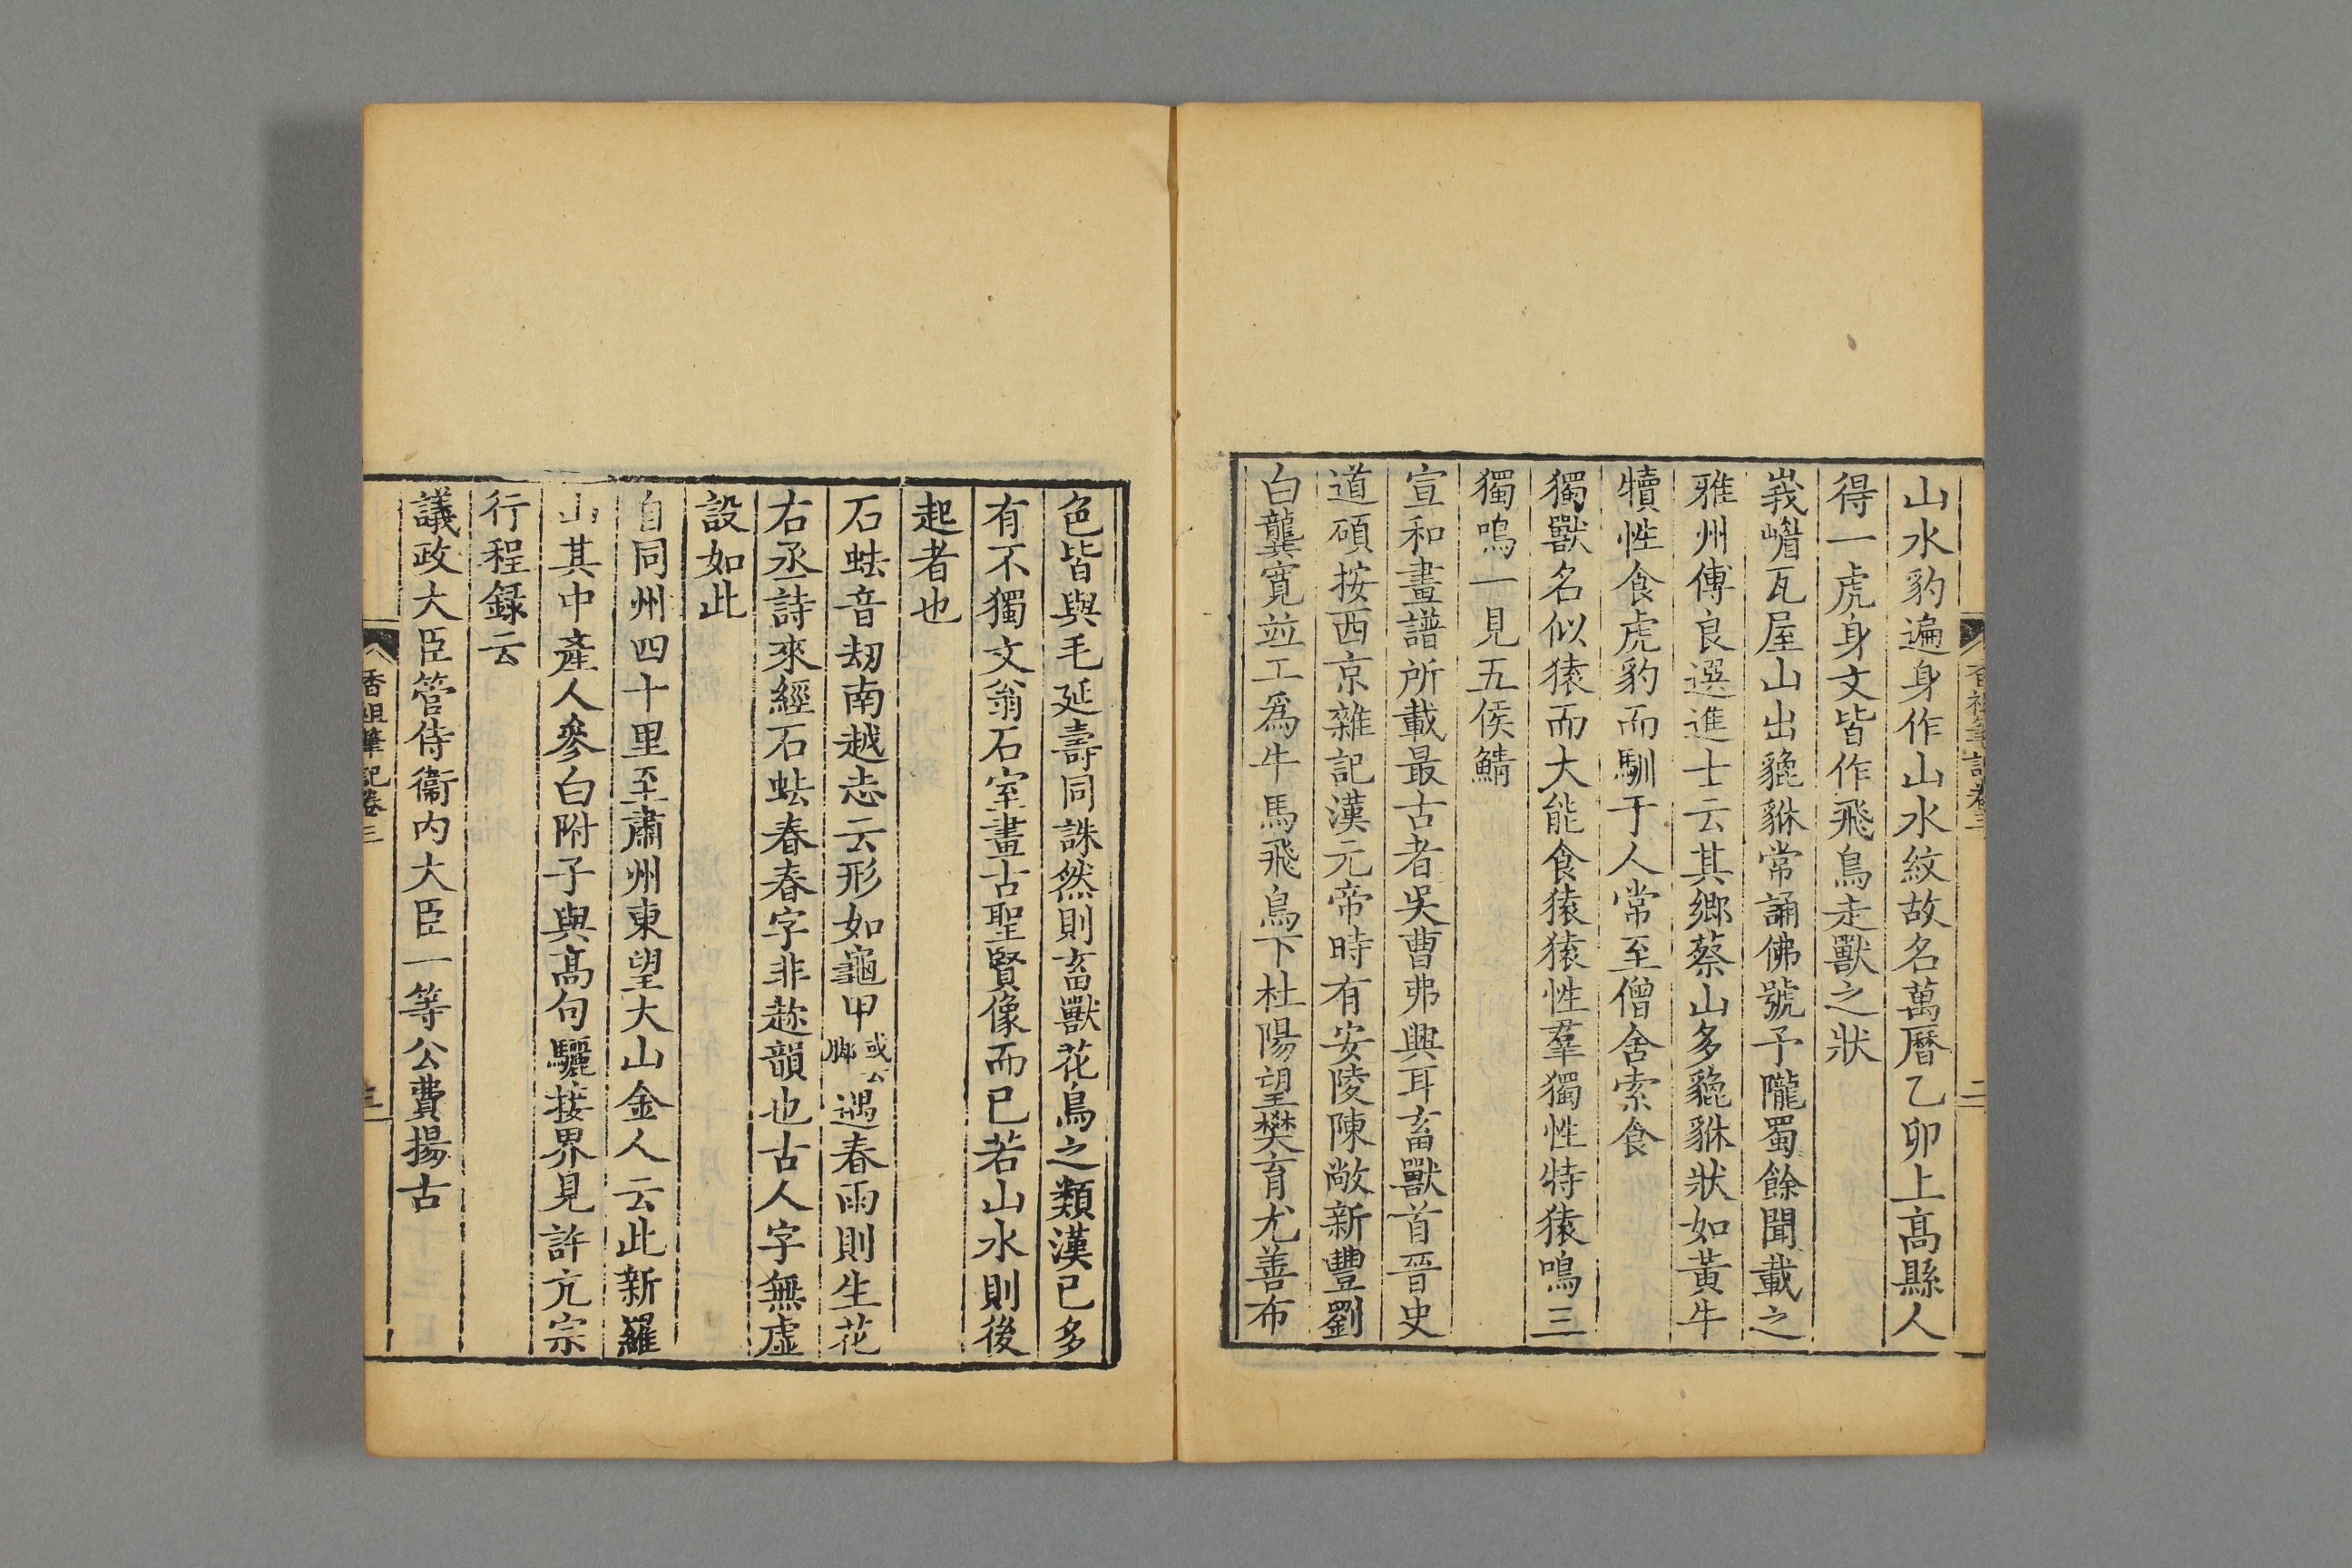 山水豹遍身作山水紋故名萬曆乙卯上高縣人
得一虎身文皆作飛鳥走獸之狀
峩嵋瓦屋山出貔貅常誦佛號予隴蜀餘聞載之
雅州傅良選進士云其鄉蔡山多貔貅狀如黃牛
犢性食虎豹而馴于人常至僧舍索食
獨獸名似猿而大能食猿猿性羣獨性特猿鳴三
獨鳴一見五侯鯖
宣和畫譜所載最古者吳曹弗興耳畜獸首晉史
道碩按西京雜記漢元帝時有安陵陳敞新豐劉
白龔寬竝工爲牛馬飛鳥下杜陽望樊育尤善布
香祖筆記卷三
二
色皆與毛延壽同誅然則畜獸花鳥之類漢已多
有不獨文翁石室畫古聖賢像而已若山水則後
起者也
石蚨音刼南越志云形如龜甲或云脚遇春雨則生花
右丞詩來經石蚨春春字非趂韻也古人字無虛
設如此
自同州四十里至肅州東望大山金人云此新羅
山其中產人參白附子與高句驪接界見許亢宗
行程録云
議政大臣管侍衞内大臣一等公費揚古
香祖筆記卷三
三